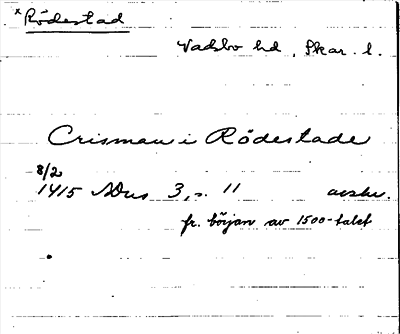 x Rödestad
Vadsbo hd, Skar. l.
Crisman i Rödestade
8/2
1415 NDus 3, s. 11 avskr.
fr. början av 1500-talet